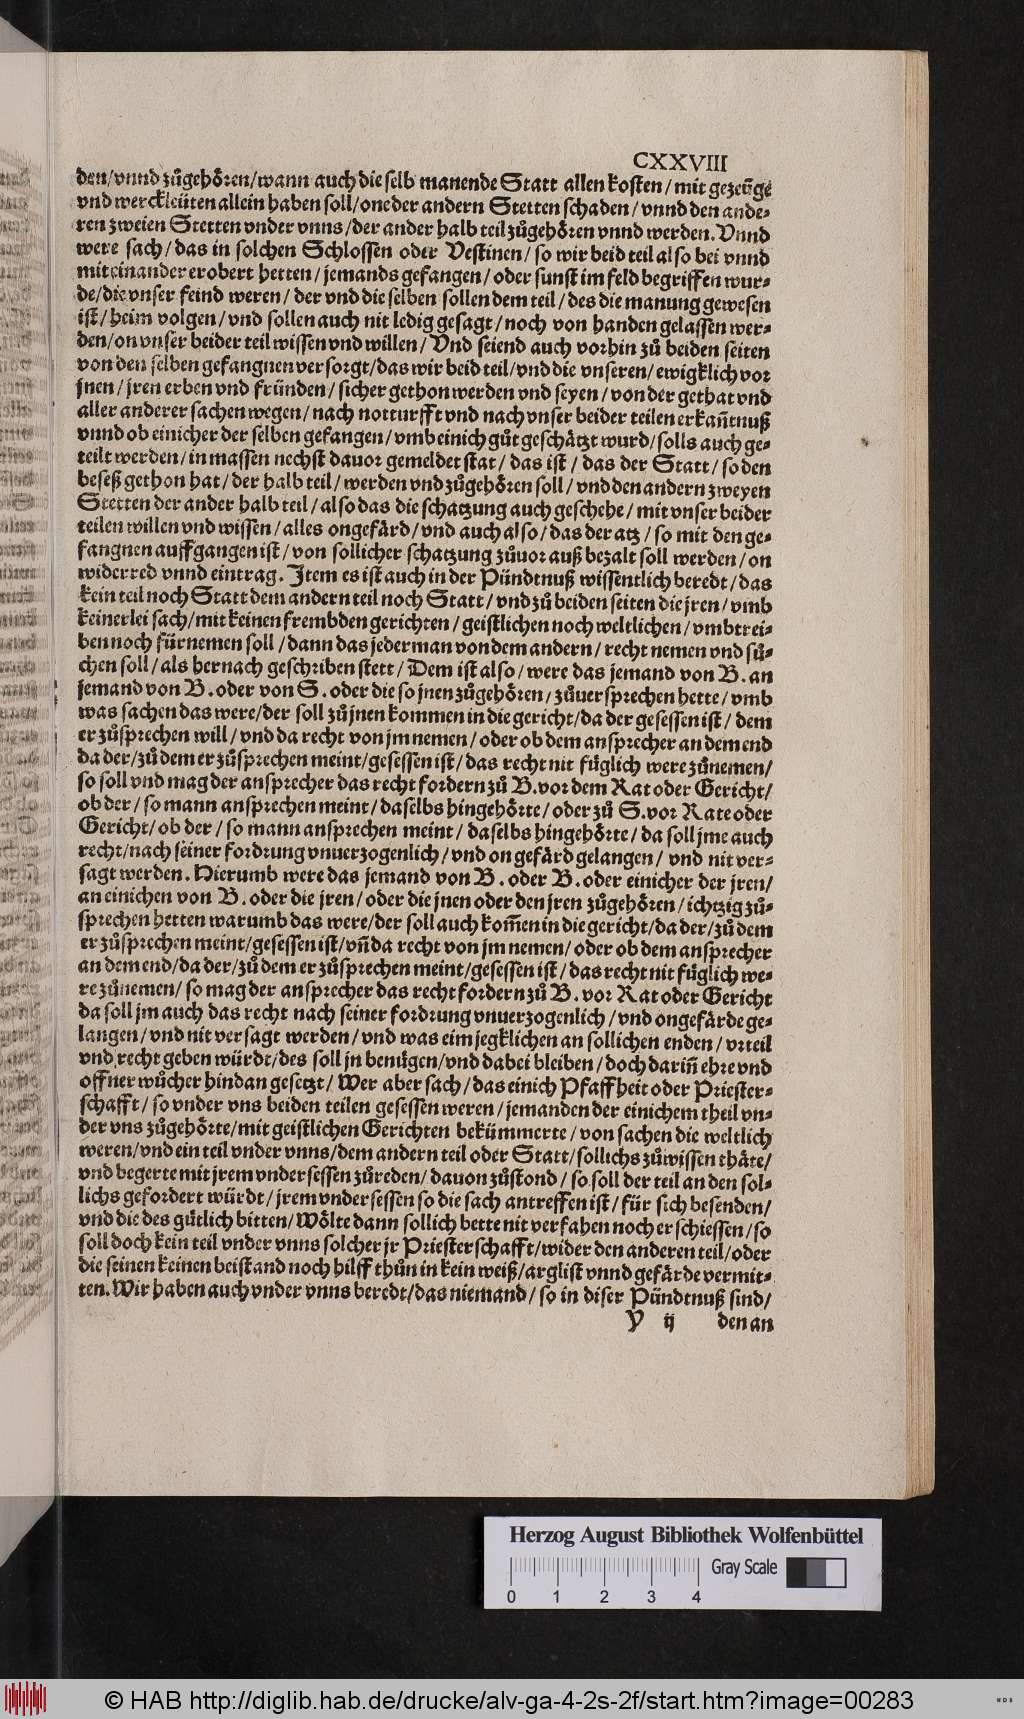 CXXVIII
den/vnnd zůgehören/wann auch die selb manende Statt allen kosten/mit gezeüge
vnd werckleüten allein haben soll/one der andern Stetten schaden/vnnd den ande-
ren zweien Stetten vnder vnns/der ander halb teil zůgehören vnnd werden. Vnnd
were sach/das in solchen Schlossen oder Vestinen/so wir beid teil also bei vnnd
mit einander erobert hetten/jemands gefangen/oder sunst im feld begriffen wur-
de/die vnser feind weren/der vnd die selben sollen dem teil/des die manung gewesen
ist/heim volgen/vnd sollen auch nit ledig gesagt/noch von handen gelassen wer-
den/on vnser beider teil wissen vnd willen/Vnd seiend auch vorhin zů beiden seiten
von den selben gefangnen versorgt/das wir beid teil/vnd die vnseren/ewigklich vor
jnen/jren erben vnd fründen/sicher gethon werden vnd seyen/von der gethat vnd
aller anderer sachen wegen/nach notturfft vnd nach vnser beider teilen erkañtnuß
vnnd ob einicher der selben gefangen/vmb einich gůt geschätzt wurd/solls auch ge-
teilt werden/in massen nechst dauor gemeldet stat/das ist/das der Statt/so den
beseß gethon hat/der halb teil/werden vnd zůgehören soll/vnd den andern zweyen
Stetten der ander halb teil/also das die schatzung auch geschehe/mit vnser beider
teilen willen vnd wissen/alles ongefärd/vnd auch also/das der atz/so mit den ge-
fangnen auffgangen ist/von sollicher schatzung zůuor auß bezalt soll werden/on
widerred vnnd eintrag. Item es ist auch in der Pündtnuß wissentlich beredt/das
kein teil noch Statt dem andern teil noch Statt/vnd zů beiden seiten die jren/vmb
keinerlei sach/mit keinen frembden gerichten/geistlichen noch weltlichen/vmbtrei-
ben noch fürnemen soll/dann das jederman von dem andern/recht nemen vnd sů-
chen soll/als hernach geschriben stett/Dem ist also/were das jemand von B. an
jemand von B. oder von S. oder die so jnen zůgehören/zůuersprechen hette/vmb
was sachen das were/der soll zů jnen kommen in die gericht/da der gesessen ist/dem
er zůsprechen will/vnd da recht von jm nemen/oder ob dem ansprecher an dem end
da der/zů dem er zůsprechen meint/gesessen ist/das recht nit füglich were zůnemen/
so soll vnd mag der ansprecher das recht fordern zů B. vor dem Rat oder Gericht/
ob der/so mann ansprechen meint/daselbs hingehörte/oder zů S. vor Rate oder
Gericht/ob der/so mann ansprechen meint/daselbs hingehörte/da soll jme auch
recht/nach seiner fordrung vnuerzogenlich/vnd on gefärd gelangen/vnd nit ver-
sagt werden. Hierumb were das jemand von B. oder B. oder einicher der jren/
an einichen von B. oder die jren/oder die jnen oder den jren zůgehören/ichtzig zů-
sprechen hetten warumb das were/der soll auch kom̃en in die gericht/da der/zů dem
er zůsprechen meint/gesessen ist/vñ da recht von jm nemen/oder ob dem ansprecher
an dem end/da der/zů dem er zůsprechen meint/gesessen ist/das recht nit füglich we-
re zůnemen/so mag der ansprecher das recht fordern zů B. vor Rat oder Gericht
da soll jm auch das recht nach seiner fordrung vnuerzogenlich/vnd ongefärde ge-
langen/vnd nit versagt werden/vnd was eim jegklichen an sollichen enden/vrteil
vnd recht geben würdt/des soll jn benügen/vnd dabei bleiben/doch dariñ ehre vnd
offner wůcher hindan gesetzt/Wer aber sach/das einich Pfaffheit oder Priester-
schafft/so vnder vns beiden teilen gesessen weren/jemanden der einichem theil vn-
der vns zůgehörte/mit geistlichen Gerichten bekümmerte/von sachen die weltlich
weren/vnd ein teil vnder vnns/dem andern teil oder Statt/sollichs zůwissen thäte/
vnd begerte mit jrem vndersessen zůreden/dauon zůstond/so soll der teil an den sol-
lichs gefordert würdt/jrem vndersessen so die sach antreffen ist/für sich besenden/
vnd die des gütlich bitten/Wölte dann sollich bette nit verfahen noch erschiessen/so
soll doch kein teil vnder vnns solcher jr Priesterschafft/wider den anderen teil/oder
die seinen keinen beistand noch hilff thůn in kein weiß/arglist vnnd gefärde vermit-
ten. Wir haben auch vnder vnns beredt/das niemand/so in diser Pündtnuß sind/
Y ij den an
Herzog August Bibliothek Wolfenbüttel
Gray Scale
0 1 2 3 4
© HAB http://diglib.hab.de/drucke/alv-ga-4-2s-2f/start.htm?image=00283